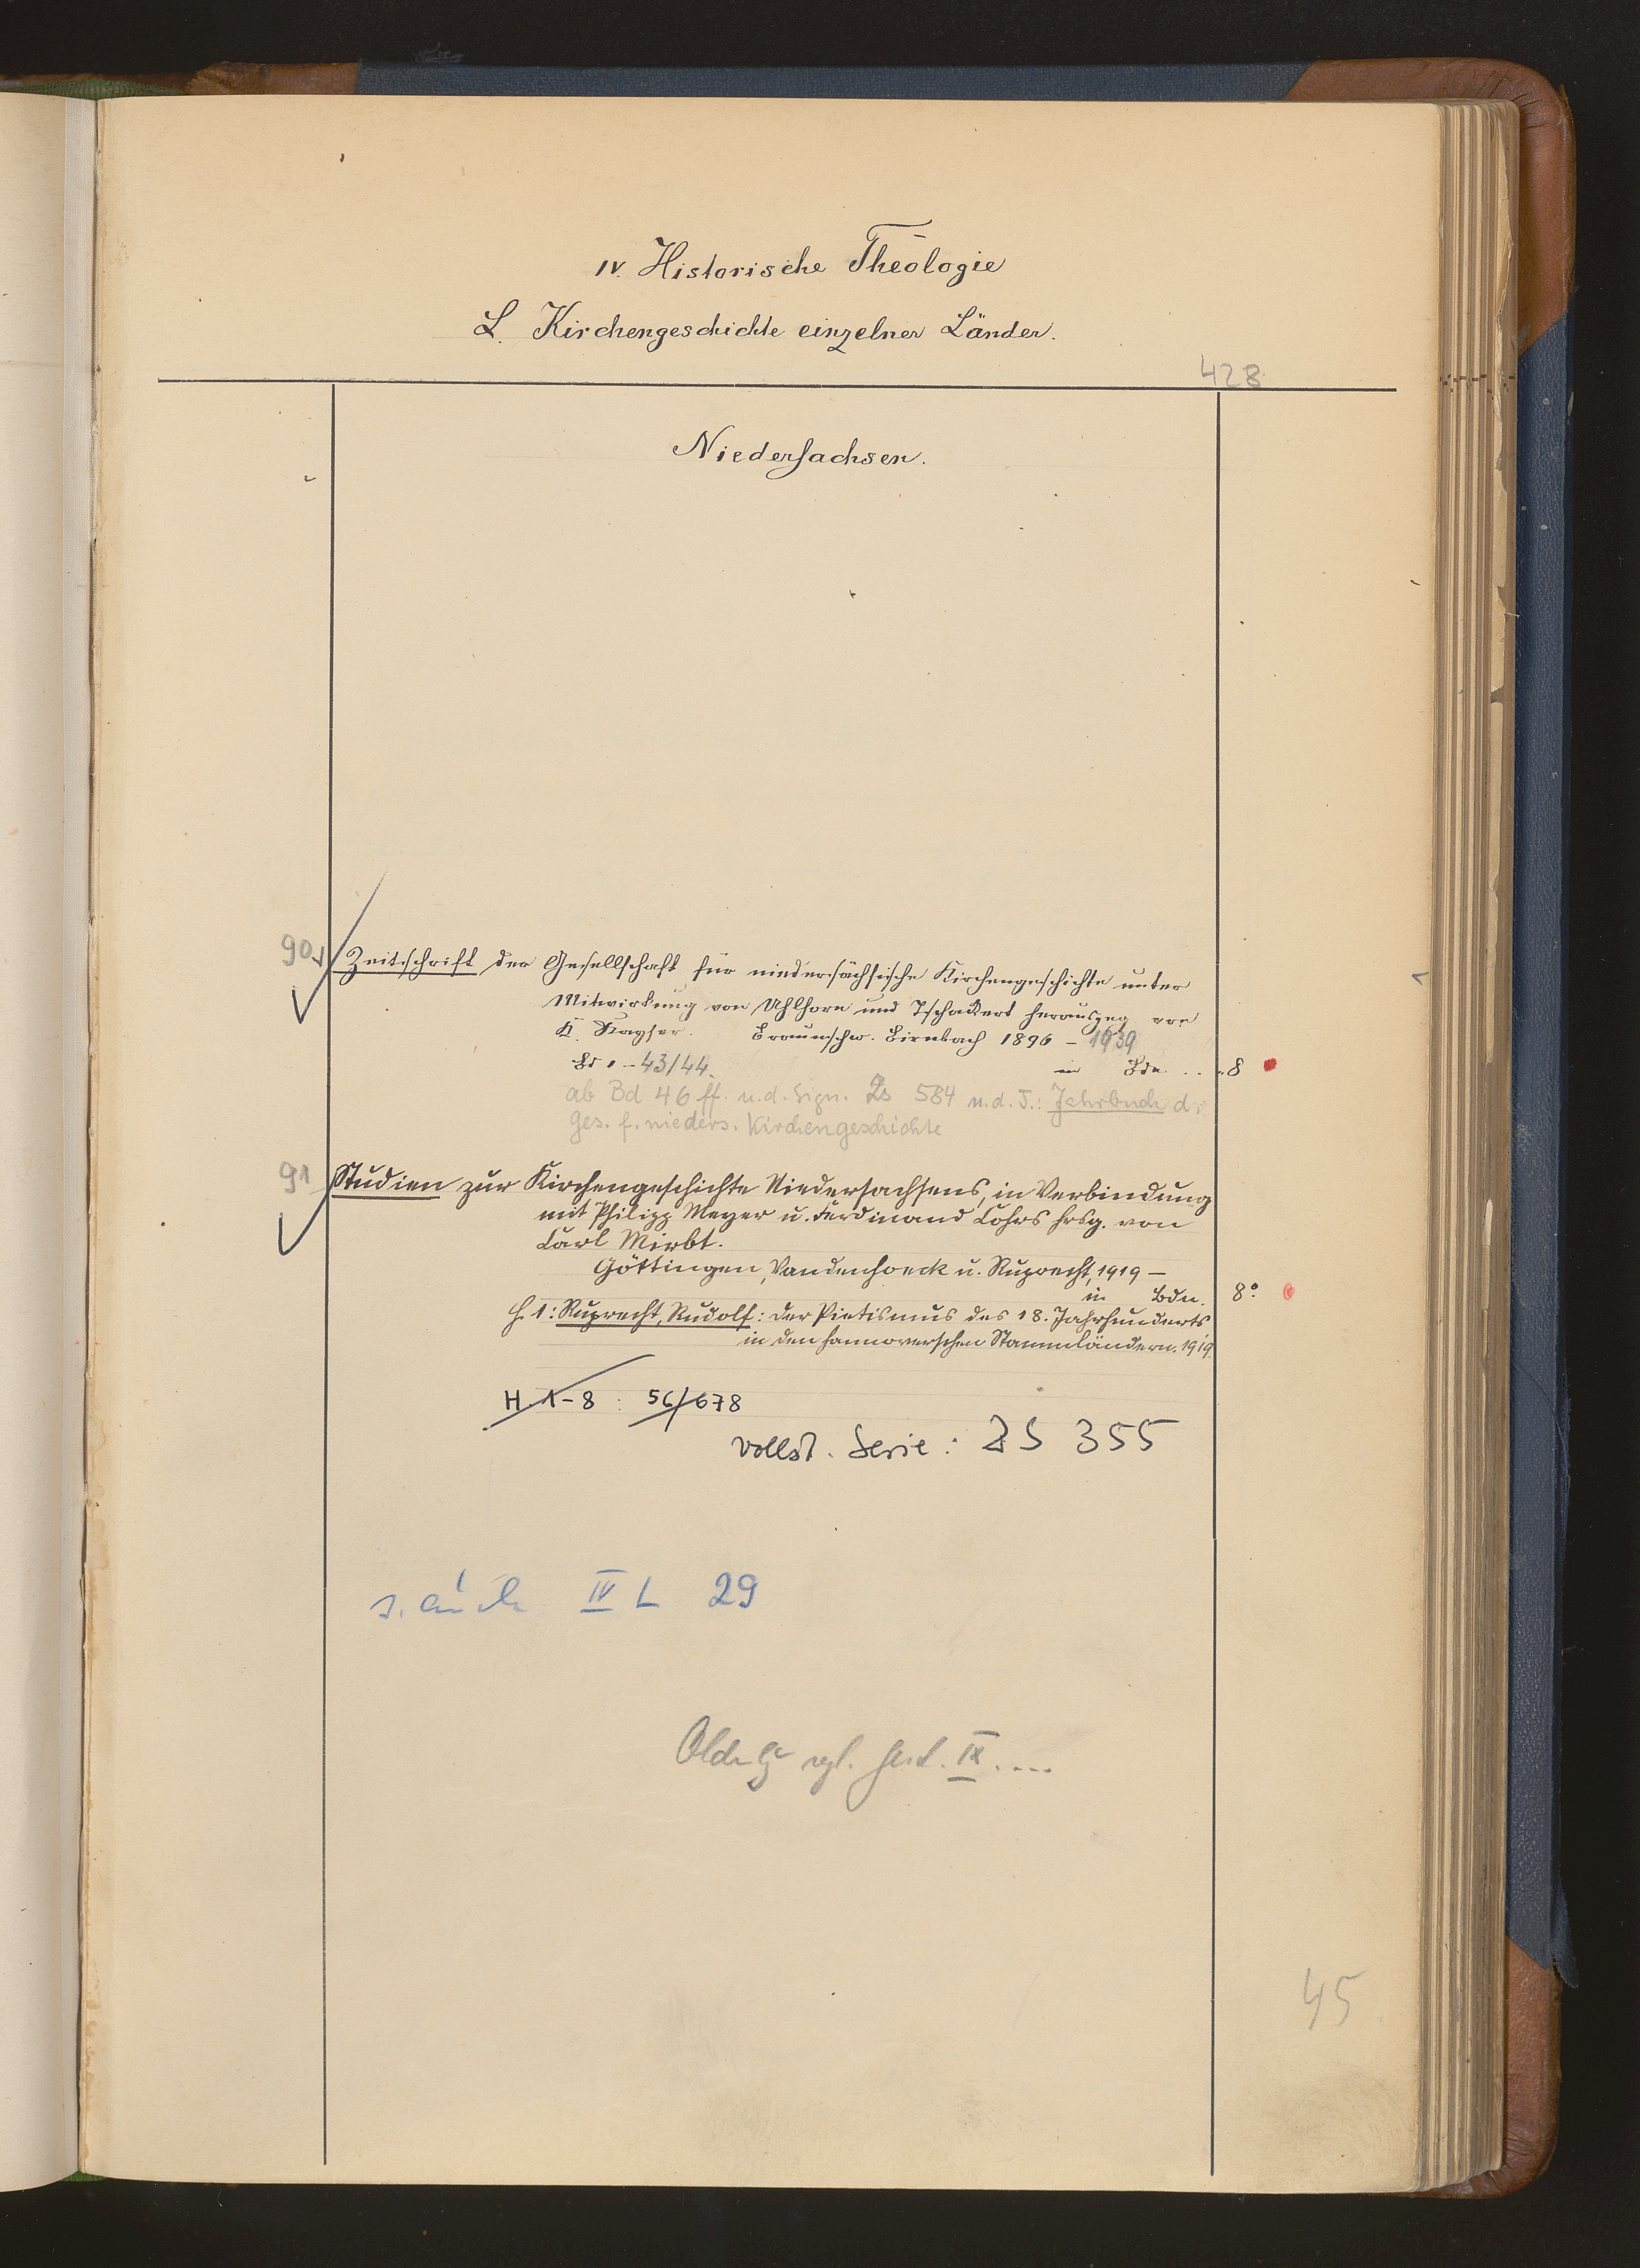 IV. Historische Theologie
L. Kirchengeschichte einzelner Länder.
428
Niedersachsen.
90
Zeitschrift der Gesellschaft für niedersächsische Kirchengeschichte unter
Mitwirkung von Uhlhorn und Tschackert herausgeg. von
K. Kayser. Braunschw. Limbach 1896 - 1939
Bd 1 - 43/44. in Bdn. 8
ab Bd 46 ff. u. d. Sign. Zs 584 u. d. T.: Jahrbuch d.
Ges. f. nieders. Kirchengeschichte
91
Studien zur Kirchengeschichte Niedersachsens, in Verbindung
mit Philipp Meyer u. Ferdinand Cohrs hrsg. von
Carl Mirbt.
Göttingen, Vandenhoeck u. Ruprecht, 1919 -
in Bdn. 8°
H. 1: Ruprecht, Rudolf: Der Pietismus des 18. Jahrhunderts
in den hannoverschen Stammländern. 1919
H. 1-8 : 56/678
vollst. Serie: ZS 355
s. auch IV L 29
vgl. IX ....
45